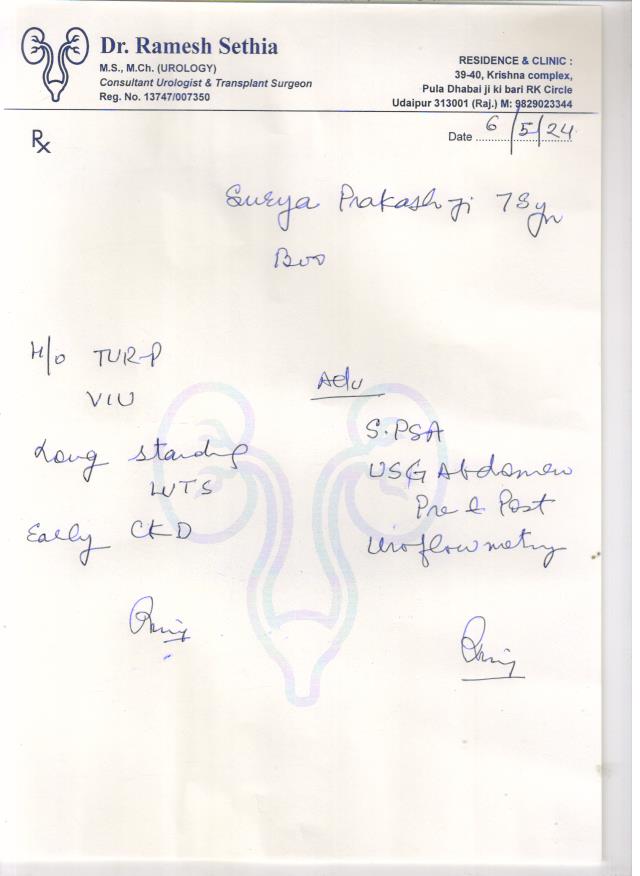 Dr. Ramesh Sethia
M.S., M.Ch. (UROLOGY)
Consultant Urologist & Transplant Surgeon
Reg. No. 13747/007350
RESIDENCE & CLINIC :
39-40, Krishna complex,
Pula Dhabai ji ki bari RK Circle
Udaipur 313001 (Raj.) M: 9829023344
Date 6/5/24
Rx
Surya Prakash ji
BOO
H/o TUR-P
VIU
Long standing
LUTS
Early CKD
Adv
S.PSA
USG Abdomen
Pre & Post
Uroflowmetry